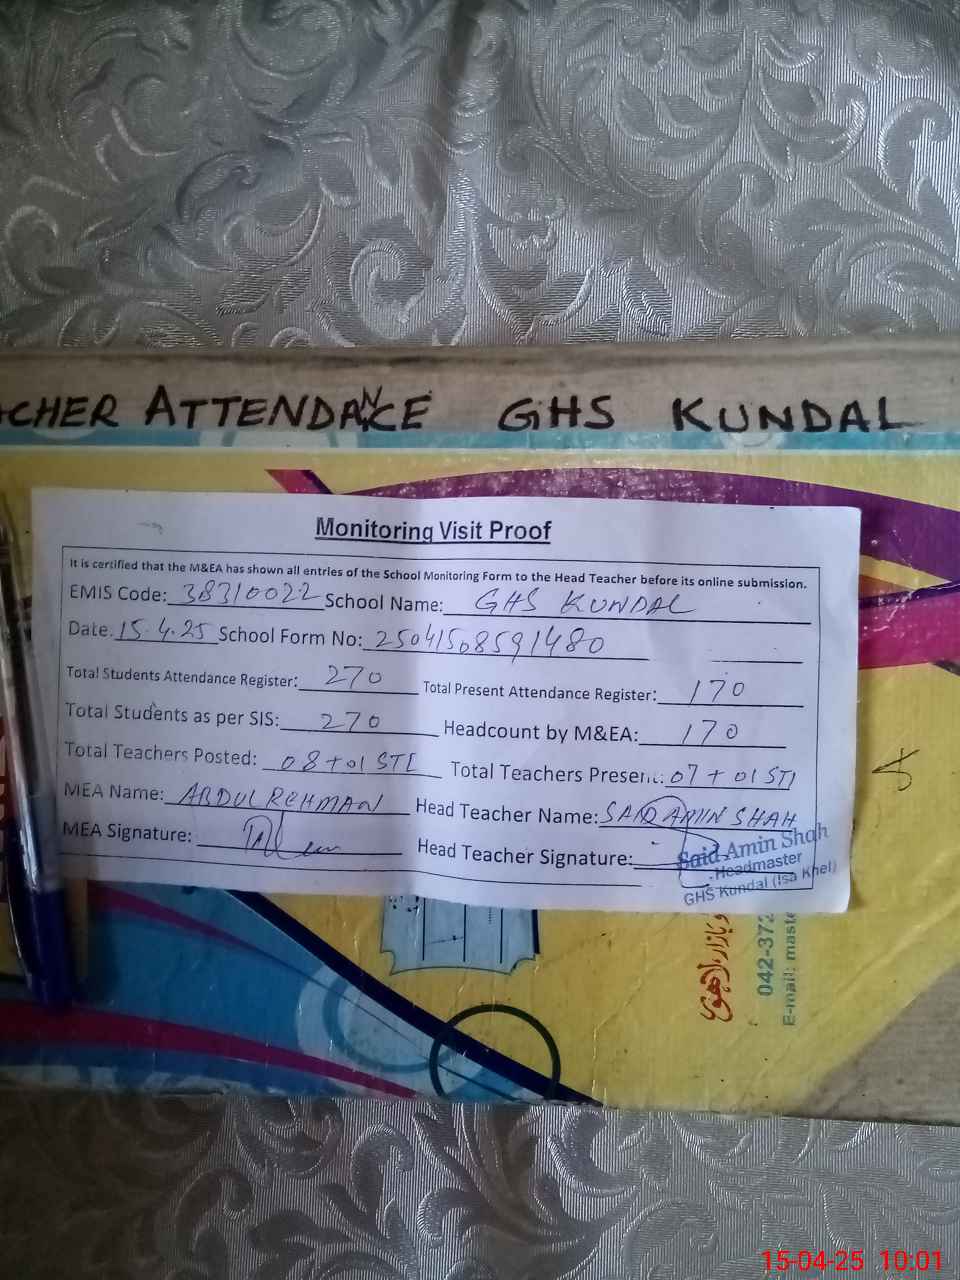 CHER ATTENDANCE GHS KUNDAL
Monitoring Visit Proof
It is certified that the M&EA has shown all entries of the School Monitoring Form to the Head Teacher before its online submission.
EMIS Code: 38310022 School Name: GHS KUNDAL
Date: 15.4.25 School Form No: 25041508591480
Total Students Attendance Register: 270 Total Present Attendance Register: 170
Total Students as per SIS: 270 Headcount by M&EA: 170
Total Teachers Posted: 08+01 STI Total Teachers Present: 07+01 STI
MEA Name: ABDUL REHMAN Head Teacher Name: SAID AMIN SHAH
MEA Signature: Head Teacher Signature:
Said Amin Shah
Headmaster
GHS Kundal (Isa Khel)
و بازار، لاہور
042-372
E-mail: maste
15-04-25 10:01